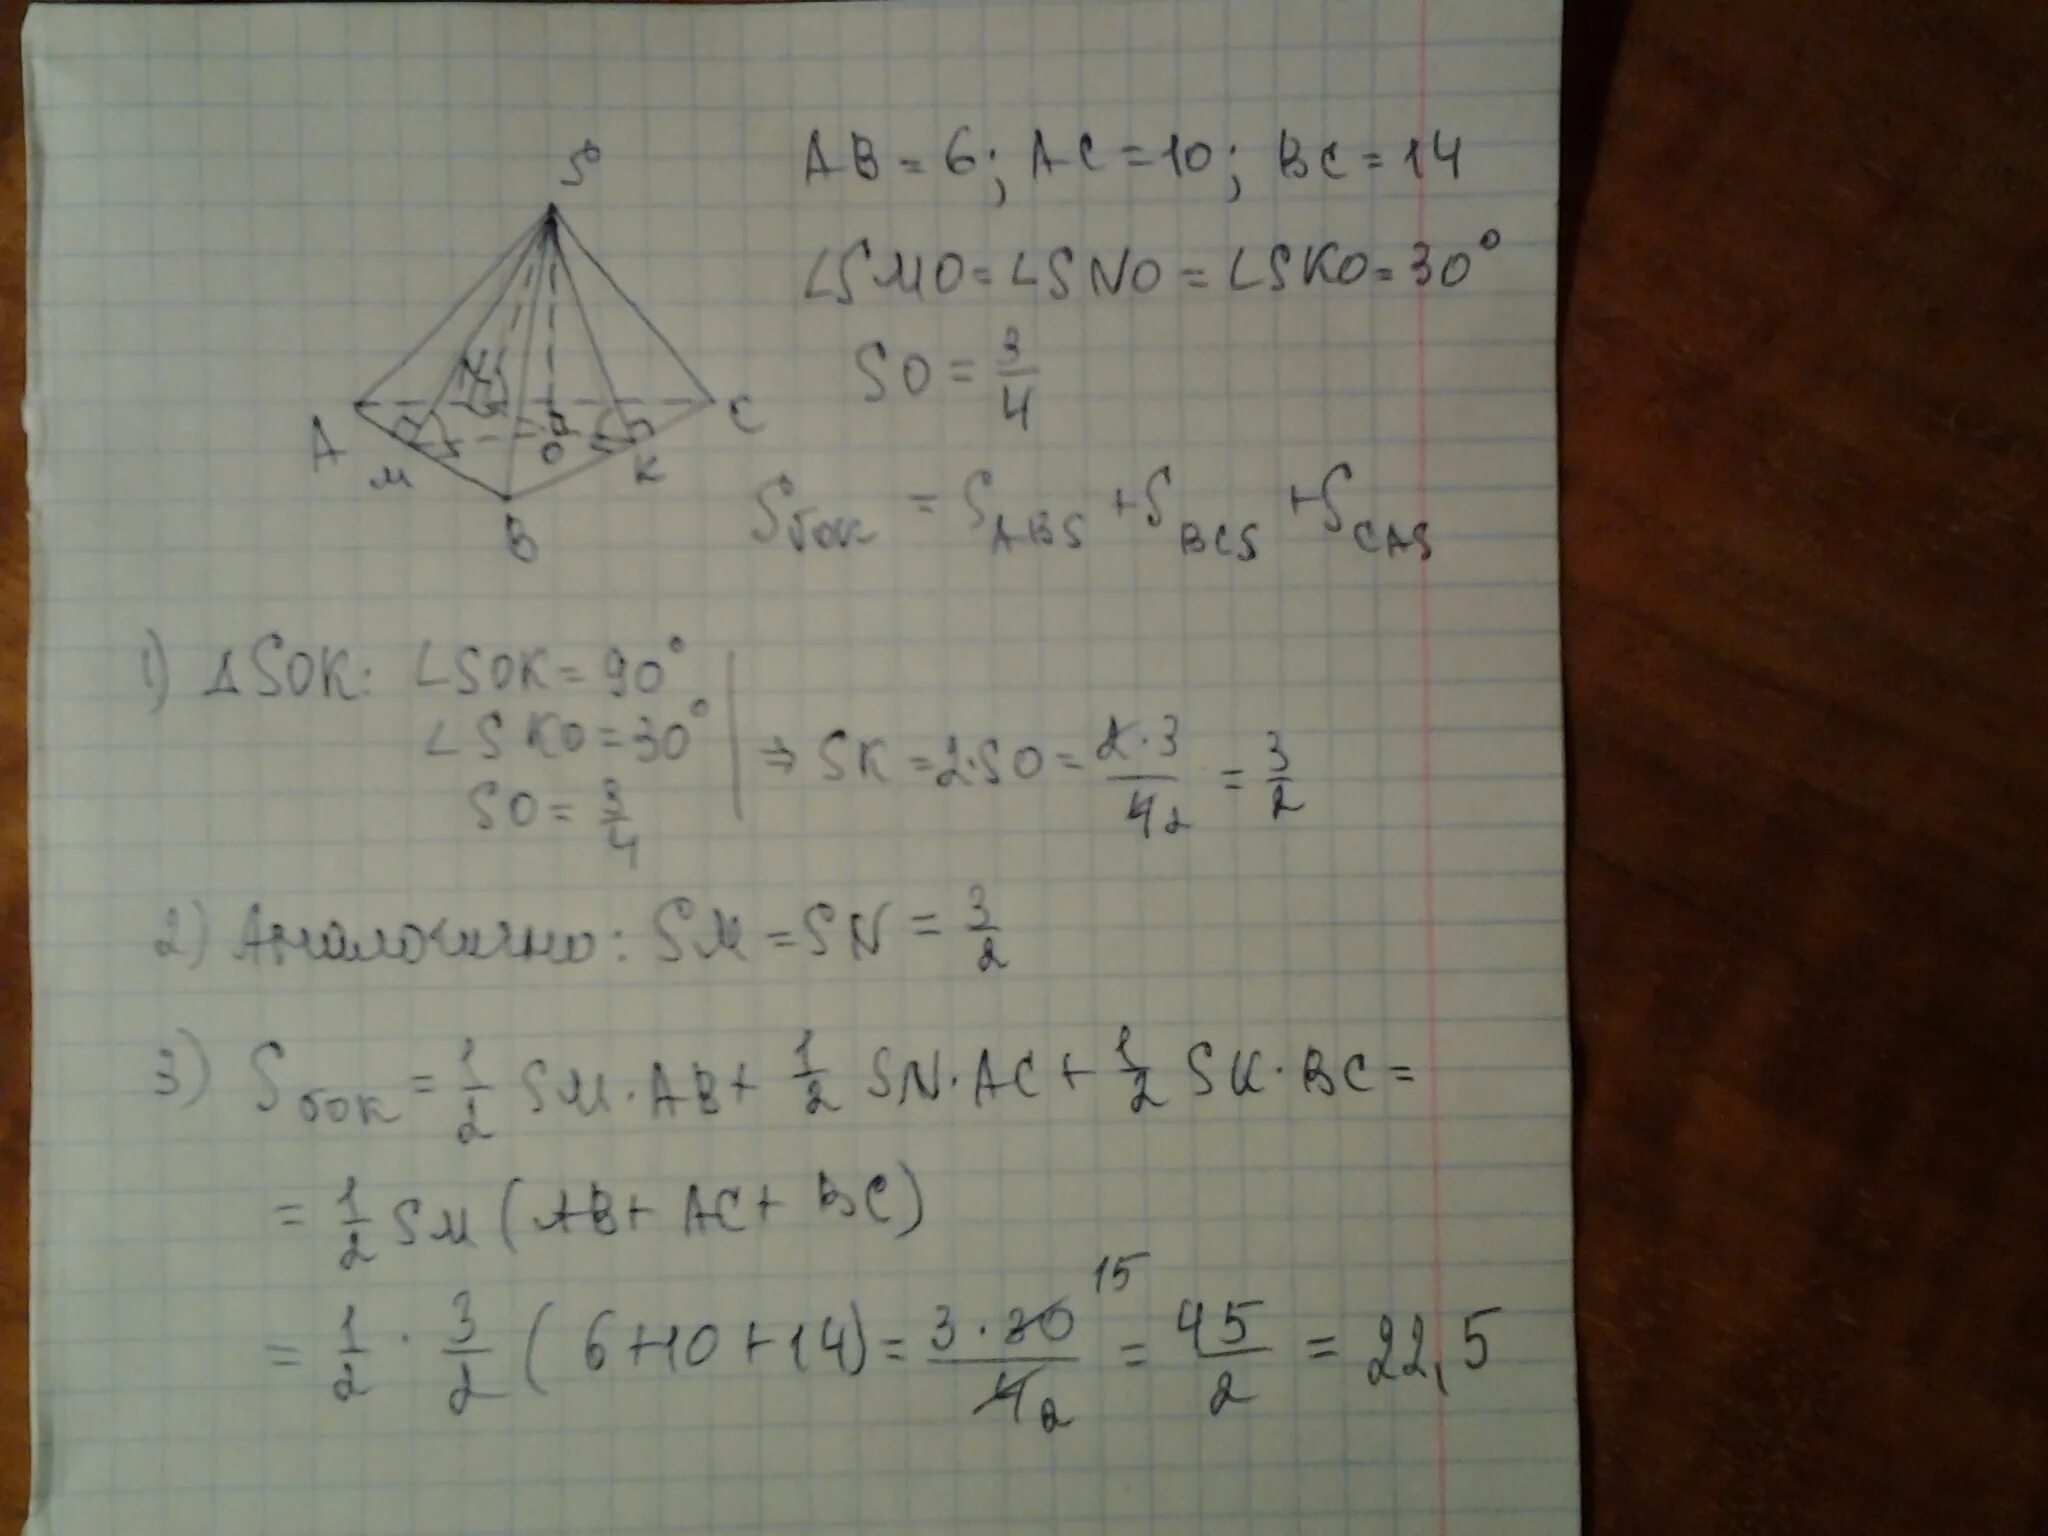 S
A
M
B
O
K
C
N
AB = 6; AC = 10; BC = 14
∠SMO = ∠SNO = ∠SKO = 30°
SO = 3/4
Sбок = S ABS + S BCS + S CAS
1) ΔSOK: ∠SOK = 90°
∠SKO = 30°
SO = 3/4
⇒ SK = 2·SO = 2·3/4 2 = 3/2
2) Аналогично: SM = SN = 3/2
3) Sбок = 1/2 SM·AB + 1/2 SN·AC + 1/2 SK·BC =
= 1/2 SM (AB + AC + BC)
= 1/2 · 3/2 (6+10+14) = 3·30 15/4 2 = 45/2 = 22,5